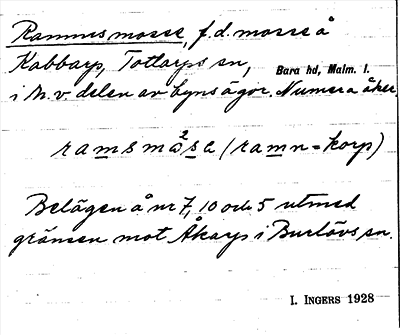 Ramnsmosse, f.d. mosse å
Kabbarp, Tottarps sn,
Bara hd, Malm. l.
i n.v. delen av byns ägor. Numera åker,
ramsmå²sa (ramn = korp)
Belägen å nr 7, 10 och 5 utmed
gränsen mot Åkarp i Burlövs sn.
I. INGERS 1928